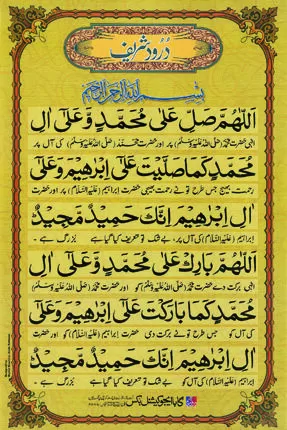 درود شریف
بسم الله الرحمن الرحيم
اَللّٰهُمَّ صَلِّ عَلٰى مُحَمَّدٍ وَّعَلٰى اٰلِ
الٰہی حضرت محمد (صلی اللہ علیہ وسلم) پر اور حضرت محمد (صلی اللہ علیہ وسلم) کی آل پر
مُحَمَّدٍ كَمَا صَلَّيْتَ عَلٰى اِبْرٰهِيْمَ وَعَلٰى
رحمت بھیج جس طرح تو نے رحمت بھیجی حضرت ابراہیم (علیہ السلام) پر اور حضرت
اٰلِ اِبْرٰهِيْمَ اِنَّكَ حَمِيْدٌ مَّجِيْدٌ
ابراہیم (علیہ السلام) کی آل پر، بے شک تو تعریف کیا گیا ہے بزرگ ہے -
اَللّٰهُمَّ بَارِكْ عَلٰى مُحَمَّدٍ وَّعَلٰى اٰلِ
الٰہی برکت دے حضرت محمد (صلی اللہ علیہ وسلم) کو اور حضرت محمد (صلی اللہ علیہ وسلم)
مُحَمَّدٍ كَمَا بَارَكْتَ عَلٰى اِبْرٰهِيْمَ وَعَلٰى
کی آل کو جس طرح تو نے برکت دی حضرت ابراہیم (علیہ السلام) کو اور حضرت
اٰلِ اِبْرٰهِيْمَ اِنَّكَ حَمِيْدٌ مَّجِيْدٌ
ابراہیم (علیہ السلام) کی آل کو بے شک تو تعریف کیا گیا ہے بزرگ ہے -
گابا ایجوکیشنل بکس